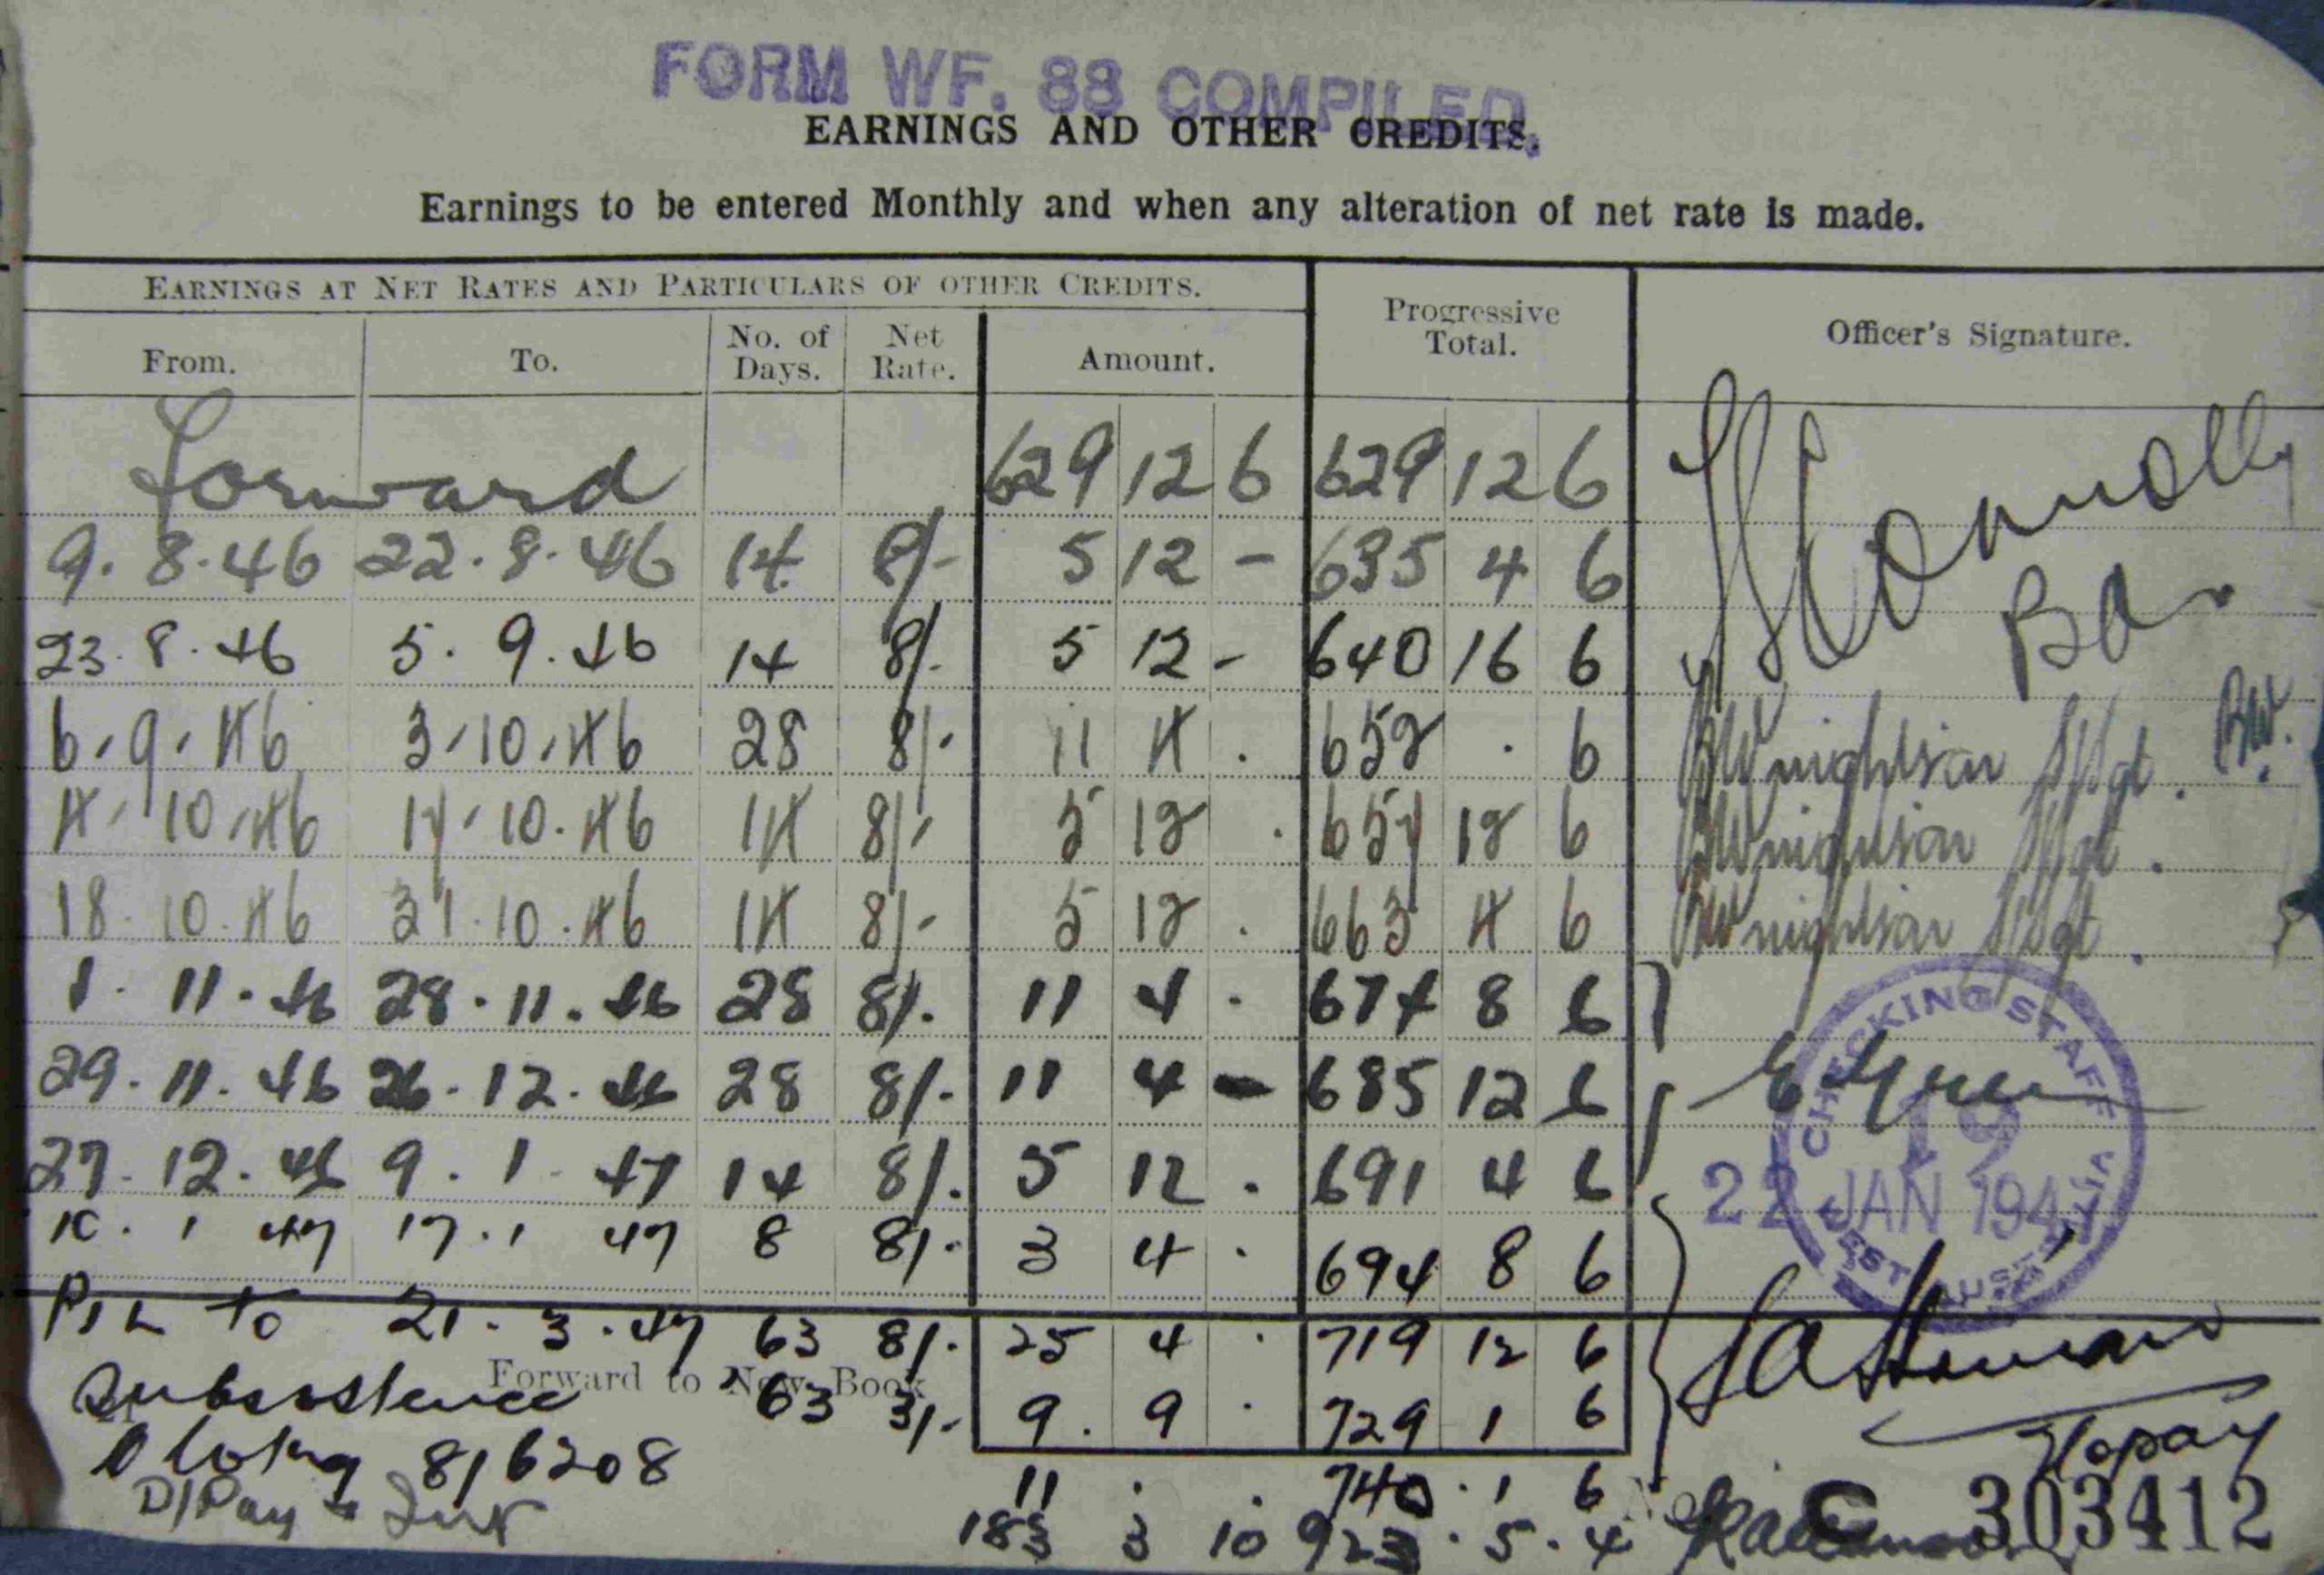 FORM WF. 88 COMPILED.
EARNINGS AND OTHER CREDITS.
Earnings to be entered Monthly and when any alteration of net rate is made.
EARNINGS AT NET RATES AND PARTICULARS OF OTHER CREDITS.
Progressive Total.
Officer's Signature.
From. To. No. of Days. Net Rate. Amount.
Forward 629 12 6 629 12 6
9.8.46 22.8.46 14 8/- 5 12 - 635 4 6
23.8.46 5.9.46 14 8/- 5 12 - 640 16 6
6.9.46 3.10.46 28 8/- 11 4 . 652 . 6
4.10.46 17.10.46 14 8/- 5 12 . 657 12 6
18.10.46 31.10.46 14 8/- 5 12 . 663 4 6
1.11.46 28.11.46 28 8/- 11 4 - 674 8 6
29.11.46 26.12.46 28 8/- 11 4 - 685 12 6
27.12.46 9.1.47 14 8/- 5 12 . 691 4 6
10.1.47 17.1.47 8 8/- 3 4 . 694 8 6
to 21.3.47 63 8/- 25 4 . 719 12 6
Forward to New Book
Subsistence 63 3/- 9 . 9 . 729 1 6
816208 11 . . 740 . 1 6
D/Pay 183 3 10 923 . 5 . 4
Connolly
S/Sgt. BW.
S/Sgt.
S/Sgt.
E Green
CHECKING STAFF
19
22 JAN 194
WEST AUSTRALIA
No. C 303412